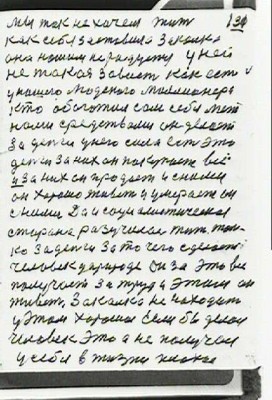 мы так не хочем жить 130
как себя заставила Закалка
она нашим не радует у ней
не такая зависть как есть
у нашего модного миллионера
кто обогатил сам себя этими
средствами он делает
за деньги у него сила есть это
деньги за них он покупает всё
и за них он продает и с ними
он хорошо живет и умирает он
с ними Да и социалистическая
сторона разучилася жить толь
ко за деньги за то чего сделает
человек у природе он за это всё
получает за труд и этим он
живет, Закалка не находит
у этом хорошем если бы делал
человек это а не получал
у себя в жизни плохое